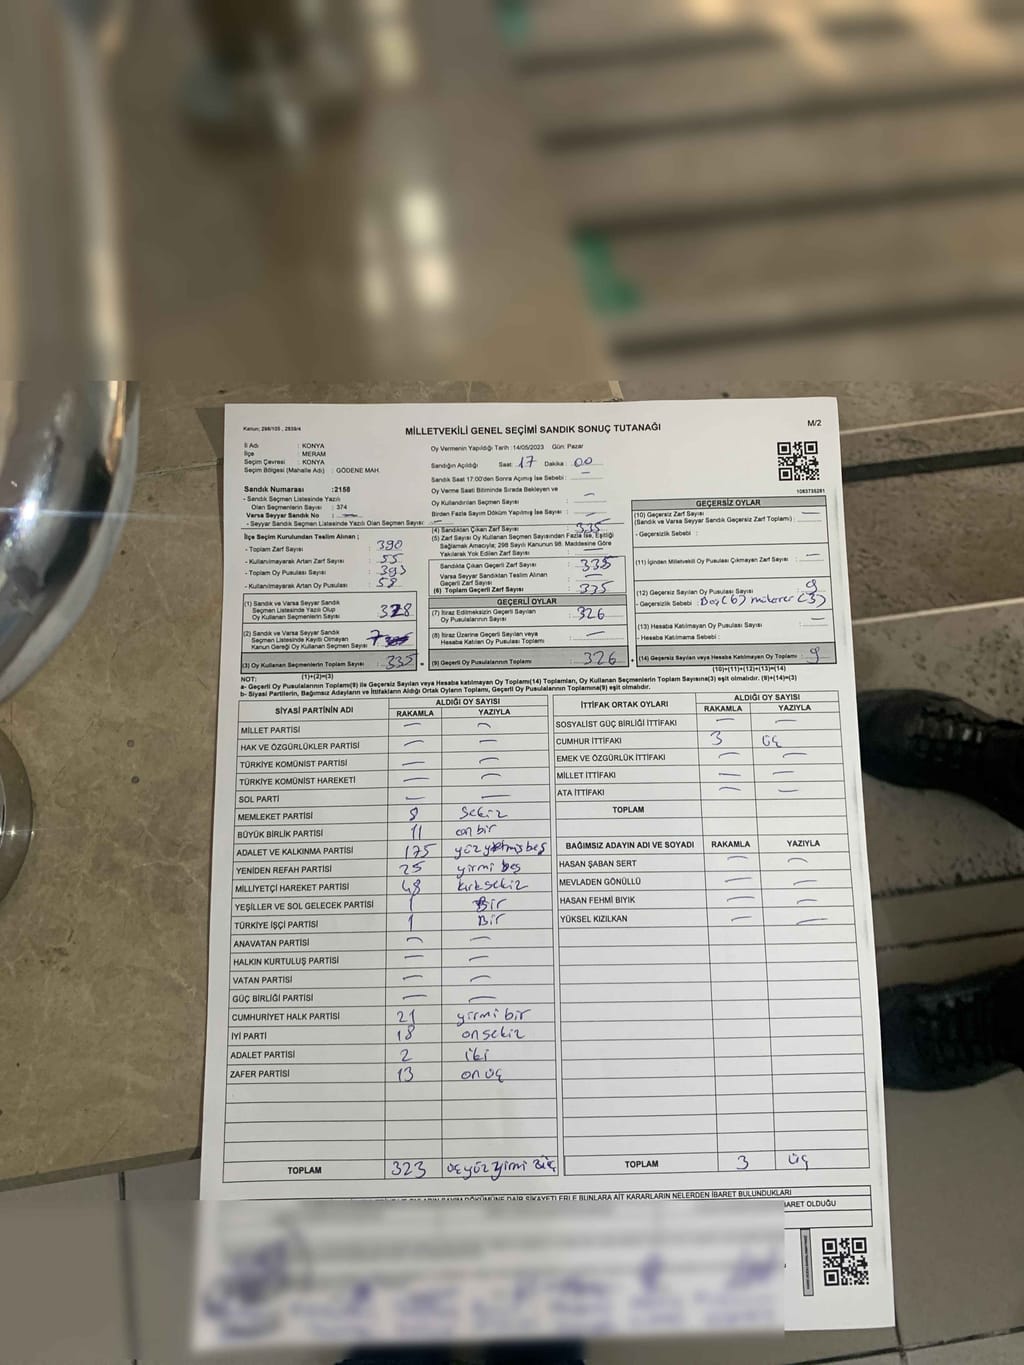 Kanun; 298/105 , 2839/4
MİLLETVEKİLİ GENEL SEÇİMİ SANDIK SONUÇ TUTANAĞI
M/2
İl Adı : KONYA
İlçe : MERAM
Seçim Çevresi : KONYA
Seçim Bölgesi (Mahalle Adı) : GÖDENE MAH.
Oy Vermenin Yapıldığı Tarih :14/05/2023 Gün: Pazar
Sandığın Açıldığı Saat: 17 Dakika: 00
Sandık Saat 17:00'den Sonra Açılmış İse Sebebi : —
Oy Verme Saati Bitiminde Sırada Bekleyen ve
Oy Kullandırılan Seçmen Sayısı : —
Birden Fazla Sayım Döküm Yapılmış İse Sayısı : —
1083735281
Sandık Numarası :2158
- Sandık Seçmen Listesinde Yazılı
Olan Seçmenlerin Sayısı : 374
Varsa Seyyar Sandık No : —
- Seyyar Sandık Seçmen Listesinde Yazılı Olan Seçmen Sayısı: —
İlçe Seçim Kurulundan Teslim Alınan ;
- Toplam Zarf Sayısı : 390
- Kullanılmayarak Artan Zarf Sayısı : 55
- Toplam Oy Pusulası Sayısı : 393
- Kullanılmayarak Artan Oy Pusulası : 58
(1) Sandık ve Varsa Seyyar Sandık
Seçmen Listesinde Yazılı Olup
Oy Kullanan Seçmenlerin Sayısı : 328
(2) Sandık ve Varsa Seyyar Sandık
Seçmen Listesinde Kayıtlı Olmayan
Kanun Gereği Oy Kullanan Seçmen Sayısı : 7
(3) Oy Kullanan Seçmenlerin Toplam Sayısı : 335
(1)+(2)=(3)
(4) Sandıktan Çıkan Zarf Sayısı : 335
(5) Zarf Sayısı Oy Kullanan Seçmen Sayısından Fazla İse, Eşitliği
Sağlamak Amacıyla; 298 Sayılı Kanunun 98. Maddesine Göre
Yakılarak Yok Edilen Zarf Sayısı : —
Sandıkta Çıkan Geçerli Zarf Sayısı : 335
Varsa Seyyar Sandıktan Teslim Alınan
Geçerli Zarf Sayısı : —
(6) Toplam Geçerli Zarf Sayısı : 335
GEÇERLİ OYLAR
(7) İtiraz Edilmeksizin Geçerli Sayılan
Oy Pusulalarının Sayısı : 326
(8) İtiraz Üzerine Geçerli Sayılan veya
Hesaba Katılan Oy Pusulası Toplamı : —
(9) Geçerli Oy Pusulalarının Toplamı : 326
GEÇERSİZ OYLAR
(10) Geçersiz Zarf Sayısı
(Sandık ve Varsa Seyyar Sandık Geçersiz Zarf Toplamı) : —
- Geçersizlik Sebebi :
(11) İçinden Milletvekili Oy Pusulası Çıkmayan Zarf Sayısı : —
(12) Geçersiz Sayılan Oy Pusulası Sayısı : 9
- Geçersizlik Sebebi : Boş (6) mükerer (3)
(13) Hesaba Katılmayan Oy Pusulası Sayısı : —
- Hesaba Katılmama Sebebi :
(14) Geçersiz Sayılan veya Hesaba Katılmayan Oy Toplamı : 9
(10)+(11)+(12)+(13)=(14)
NOT:
a- Geçerli Oy Pusulalarının Toplamı(9) ile Geçersiz Sayılan veya Hesaba katılmayan Oy Toplamı(14) Toplamları, Oy Kullanan Seçmenlerin Toplam Sayısına(3) eşit olmalıdır. (9)+(14)=(3)
b- Siyasi Partilerin, Bağımsız Adayların ve İttifakların Aldığı Ortak Oyların Toplamı, Geçerli Oy Pusulalarının Toplamına(9) eşit olmalıdır.
SİYASİ PARTİNİN ADI ALDIĞI OY SAYISI
RAKAMLA YAZIYLA
MİLLET PARTİSİ — —
HAK VE ÖZGÜRLÜKLER PARTİSİ — —
TÜRKİYE KOMÜNİST PARTİSİ — —
TÜRKİYE KOMÜNİST HAREKETİ — —
SOL PARTİ — —
MEMLEKET PARTİSİ 8 Sekiz
BÜYÜK BİRLİK PARTİSİ 11 on bir
ADALET VE KALKINMA PARTİSİ 175 yüz yetmiş beş
YENİDEN REFAH PARTİSİ 25 yirmi beş
MİLLİYETÇİ HAREKET PARTİSİ 48 kırk sekiz
YEŞİLLER VE SOL GELECEK PARTİSİ 1 Bir
TÜRKİYE İŞÇİ PARTİSİ 1 Bir
ANAVATAN PARTİSİ — —
HALKIN KURTULUŞ PARTİSİ — —
VATAN PARTİSİ — —
GÜÇ BİRLİĞİ PARTİSİ — —
CUMHURİYET HALK PARTİSİ 21 yirmi bir
İYİ PARTİ 18 on sekiz
ADALET PARTİSİ 2 iki
ZAFER PARTİSİ 13 on üç
TOPLAM 323 üç yüz yirmi üç
İTTİFAK ORTAK OYLARI ALDIĞI OY SAYISI
RAKAMLA YAZIYLA
SOSYALİST GÜÇ BİRLİĞİ İTTİFAKI — —
CUMHUR İTTİFAKI 3 üç
EMEK VE ÖZGÜRLÜK İTTİFAKI — —
MİLLET İTTİFAKI — —
ATA İTTİFAKI — —
TOPLAM
BAĞIMSIZ ADAYIN ADI VE SOYADI RAKAMLA YAZIYLA
HASAN ŞABAN SERT — —
MEVLADEN GÖNÜLLÜ — —
HASAN FEHMİ BIYIK — —
YÜKSEL KIZILKAN — —
TOPLAM 3 üç
SAYIM DÖKÜMÜNE DAİR ŞİKAYETLERLE BUNLARA AİT KARARLARIN NELERDEN İBARET BULUNDUKLARI
İBARET OLDUĞU